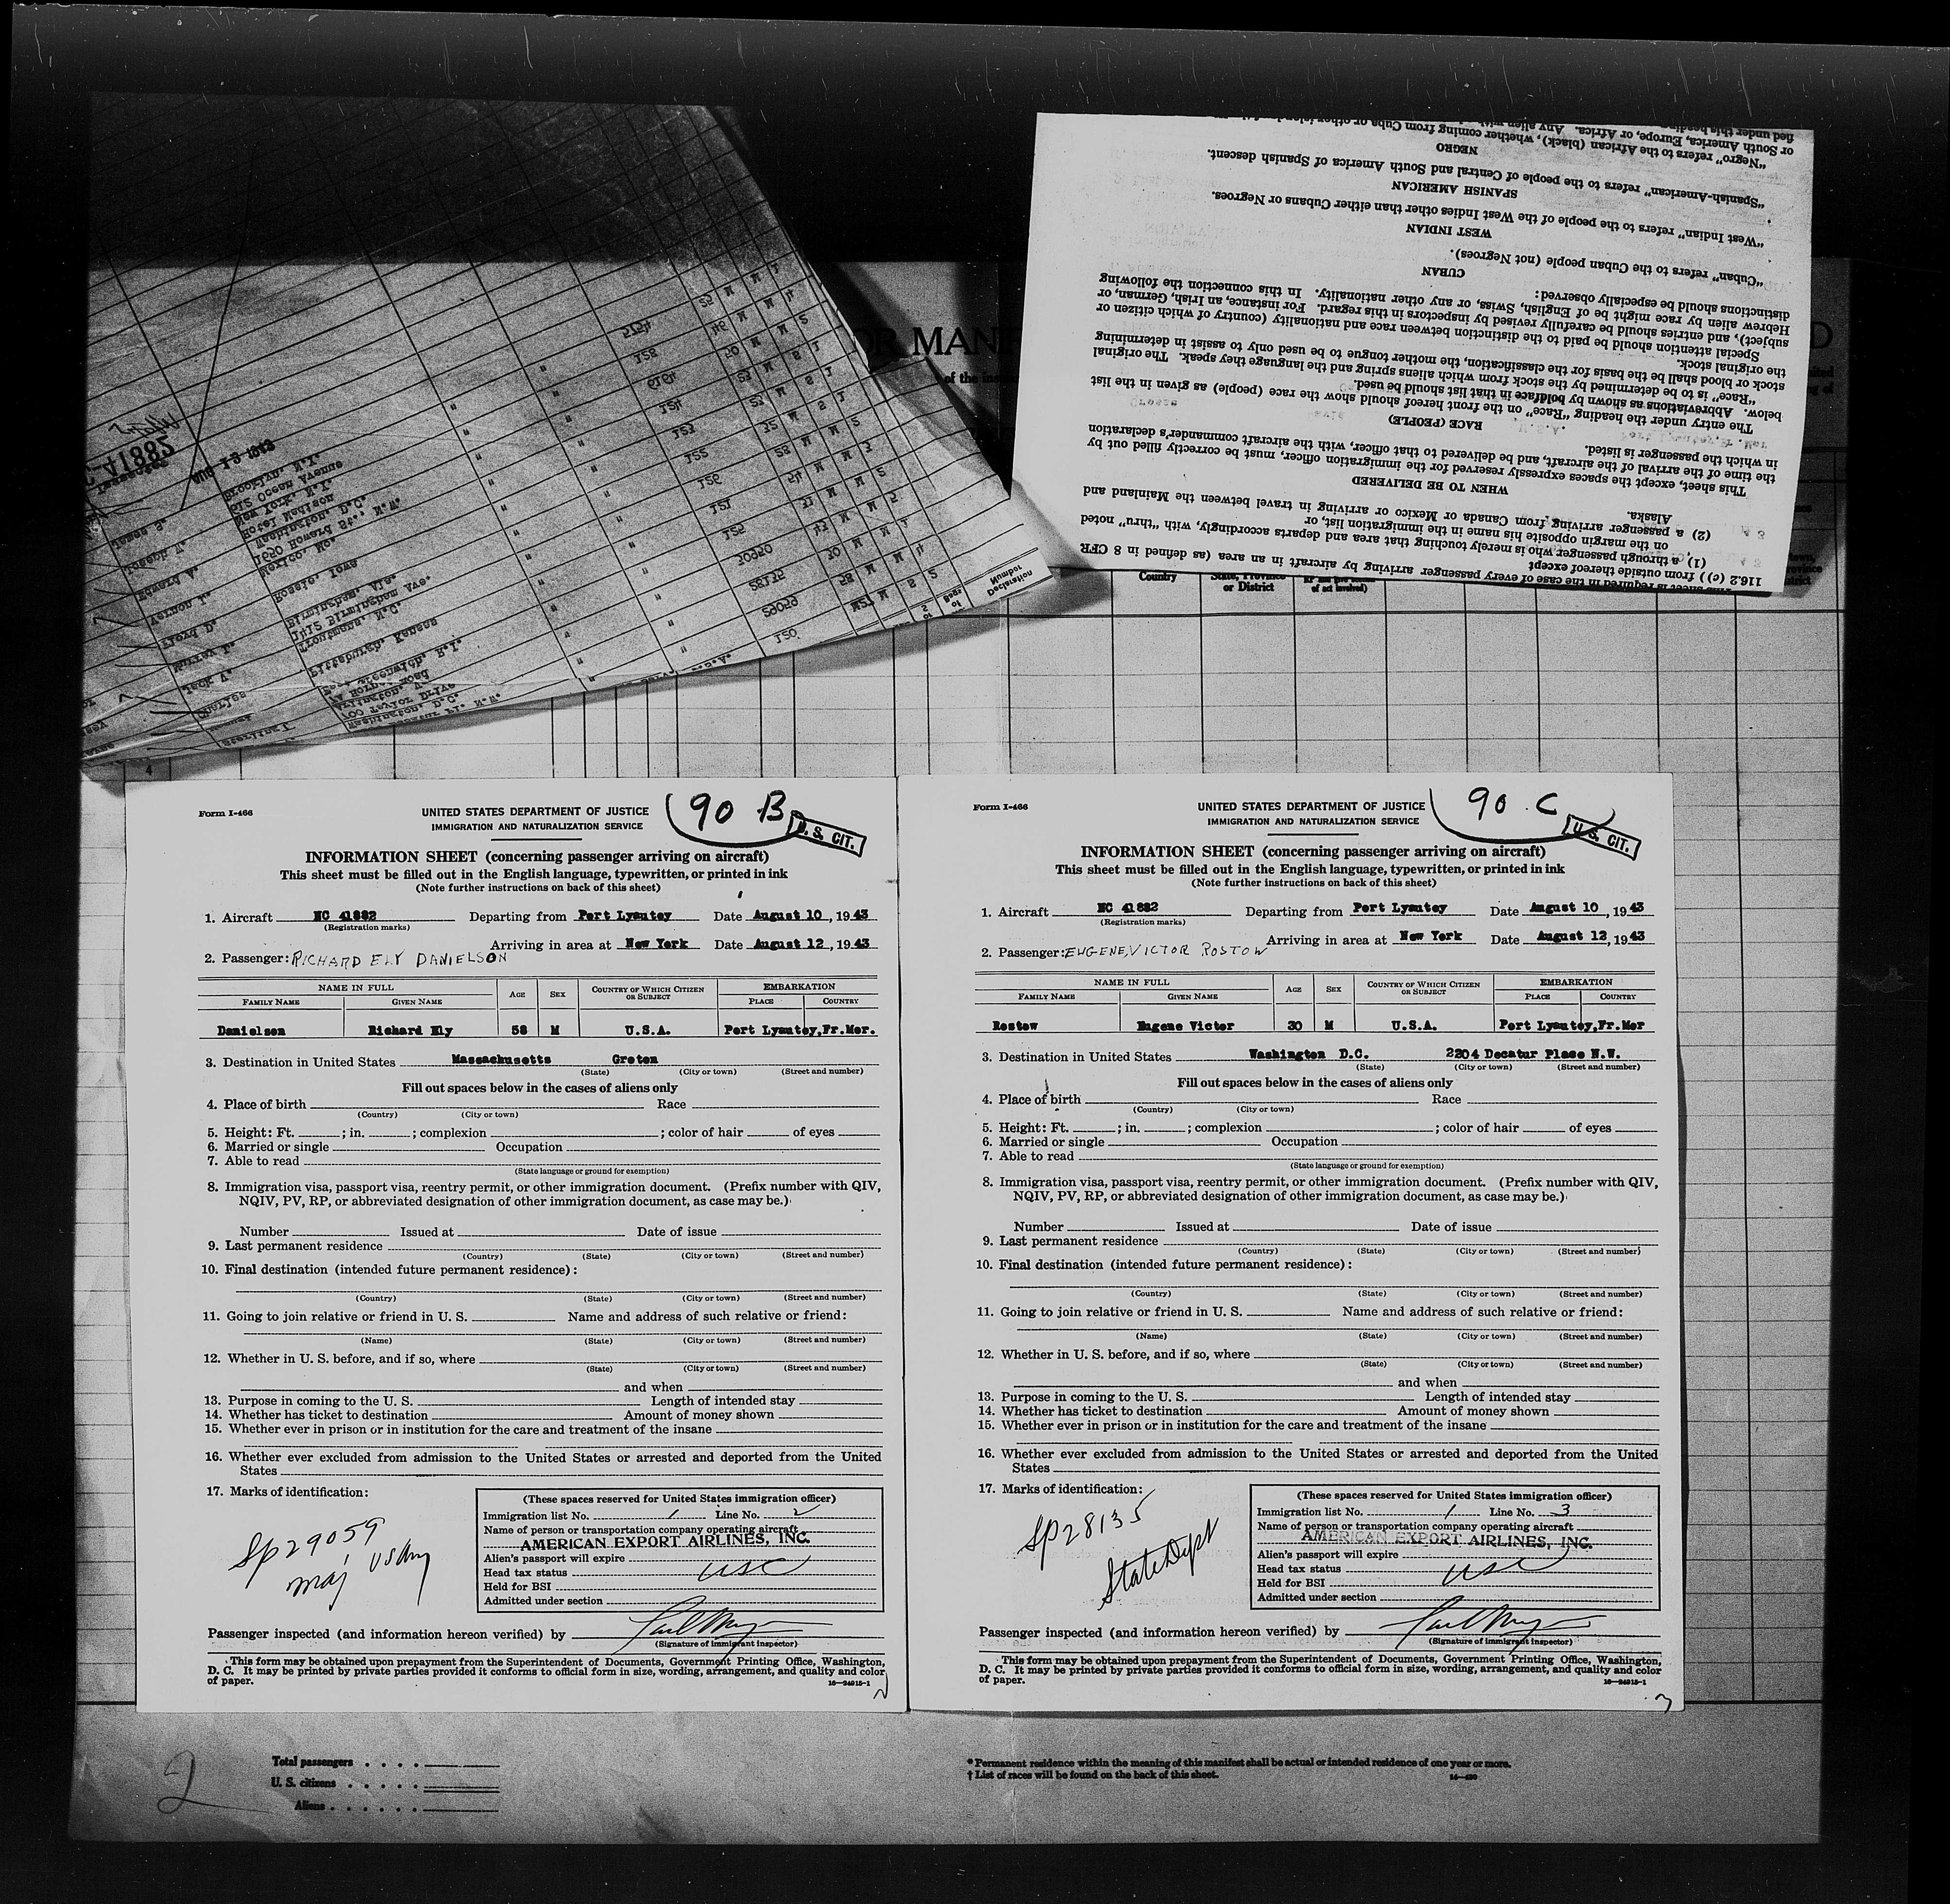 OR MAN
D
of the ins
Country
State, Province
or District
of act involved)
116.2 (c)) from outside thereof except
This sheet is required in the case of every passenger arriving by aircraft in an area (as defined in 8 CFR
(1) a through passenger who is merely touching that area and departs accordingly, with "thru" noted
on the margin opposite his name in the immigration list, or
(2) a passenger arriving from Canada or Mexico or arriving in travel between the Mainland and
Alaska.
WHEN TO BE DELIVERED
This sheet, except the spaces expressly reserved for the immigration officer, must be correctly filled out by
the time of the arrival of the aircraft, and be delivered to that officer, with the aircraft commander's declaration
in which the passenger is listed.
RACE (PEOPLE)
The entry under the heading "Race" on the front hereof should show the race (people) as given in the list
below. Abbreviations as shown by boldface in that list should be used.
"Race" is to be determined by the stock from which aliens spring and the language they speak. The original
stock or blood shall be the basis for the classification, the mother tongue to be used only to assist in determining
the original stock.
Special attention should be paid to the distinction between race and nationality (country of which citizen or
subject), and entries should be carefully revised by inspectors in this regard. For instance, an Irish, German, or
Hebrew alien by race might be of English, Swiss, or any other nationality. In this connection the following
distinctions should be especially observed:
CUBAN
"Cuban" refers to the Cuban people (not Negroes).
WEST INDIAN
"West Indian" refers to the people of the West Indies other than either Cubans or Negroes.
SPANISH AMERICAN
"Spanish-American" refers to the people of Central and South America of Spanish descent.
NEGRO
"Negro" refers to the African (black), whether coming from Cuba or other
or South America, Europe, or Africa. Any alien
fied under this heading
C-41882
AUG 13 1943
Brooklyn, N.Y.
Ocean Avenue
New York, N.Y.
Hotel Madison
Washington, D.C.
Mexico, Mo.
Rosate, Iowa
Birmingham, Ala.
1415 Birmingham Ave.
Troutmans, N.C.
Pittsburgh, Kansas
Washington, D.C.
Charles
Jack V.
Floyd D.
Vernon L.
Edward A.
Joseph T.
James S.
4
Form I-466
UNITED STATES DEPARTMENT OF JUSTICE
IMMIGRATION AND NATURALIZATION SERVICE
90 B
U. S. CIT.
INFORMATION SHEET (concerning passenger arriving on aircraft)
This sheet must be filled out in the English language, typewritten, or printed in ink
(Note further instructions on back of this sheet)
1. Aircraft NC 41882 Departing from Port Lyautey Date August 10, 1943
(Registration marks)
Arriving in area at New York Date August 12, 1943
2. Passenger: RICHARD ELY DANIELSON
NAME IN FULL AGE SEX COUNTRY OF WHICH CITIZEN OR SUBJECT EMBARKATION
FAMILY NAME GIVEN NAME PLACE COUNTRY
Danielson Richard Ely 58 M U.S.A. Port Lyautey,Fr.Mor.
3. Destination in United States Massachusetts Groton
(State) (City or town) (Street and number)
Fill out spaces below in the cases of aliens only
4. Place of birth Race
(Country) (City or town)
5. Height: Ft. ; in. ; complexion ; color of hair of eyes
6. Married or single Occupation
7. Able to read
(State language or ground for exemption)
8. Immigration visa, passport visa, reentry permit, or other immigration document. (Prefix number with QIV,
NQIV, PV, RP, or abbreviated designation of other immigration document, as case may be.)
Number Issued at Date of issue
9. Last permanent residence
(Country) (State) (City or town) (Street and number)
10. Final destination (intended future permanent residence):
(Country) (State) (City or town) (Street and number)
11. Going to join relative or friend in U. S. Name and address of such relative or friend:
(Name) (State) (City or town) (Street and number)
12. Whether in U. S. before, and if so, where
(State) (City or town) (Street and number)
and when
13. Purpose in coming to the U. S. Length of intended stay
14. Whether has ticket to destination Amount of money shown
15. Whether ever in prison or in institution for the care and treatment of the insane
16. Whether ever excluded from admission to the United States or arrested and deported from the United
States
17. Marks of identification:
SP 29059
Maj US Army
(These spaces reserved for United States immigration officer)
Immigration list No. 1 Line No. 2
Name of person or transportation company operating aircraft
AMERICAN EXPORT AIRLINES, INC.
Alien's passport will expire
Head tax status USC
Held for BSI
Admitted under section
Passenger inspected (and information hereon verified) by
(Signature of immigrant inspector)
This form may be obtained upon prepayment from the Superintendent of Documents, Government Printing Office, Washington,
D. C. It may be printed by private parties provided it conforms to official form in size, wording, arrangement, and quality and color
of paper.
16—24915-1
2
Form I-466
UNITED STATES DEPARTMENT OF JUSTICE
IMMIGRATION AND NATURALIZATION SERVICE
90 C
U. S. CIT.
INFORMATION SHEET (concerning passenger arriving on aircraft)
This sheet must be filled out in the English language, typewritten, or printed in ink
(Note further instructions on back of this sheet)
1. Aircraft NC 41882 Departing from Port Lyautey Date August 10, 1943
(Registration marks)
Arriving in area at New York Date August 12, 1943
2. Passenger: EUGENE VICTOR ROSTOW
NAME IN FULL AGE SEX COUNTRY OF WHICH CITIZEN OR SUBJECT EMBARKATION
FAMILY NAME GIVEN NAME PLACE COUNTRY
Rostow Eugene Victor 30 M U.S.A. Port Lyautey,Fr.Mor
3. Destination in United States Washington D.C. 2204 Decatur Place N.W.
(State) (City or town) (Street and number)
Fill out spaces below in the cases of aliens only
4. Place of birth Race
(Country) (City or town)
5. Height: Ft. ; in. ; complexion ; color of hair of eyes
6. Married or single Occupation
7. Able to read
(State language or ground for exemption)
8. Immigration visa, passport visa, reentry permit, or other immigration document. (Prefix number with QIV,
NQIV, PV, RP, or abbreviated designation of other immigration document, as case may be.)
Number Issued at Date of issue
9. Last permanent residence
(Country) (State) (City or town) (Street and number)
10. Final destination (intended future permanent residence):
(Country) (State) (City or town) (Street and number)
11. Going to join relative or friend in U. S. Name and address of such relative or friend:
(Name) (State) (City or town) (Street and number)
12. Whether in U. S. before, and if so, where
(State) (City or town) (Street and number)
and when
13. Purpose in coming to the U. S. Length of intended stay
14. Whether has ticket to destination Amount of money shown
15. Whether ever in prison or in institution for the care and treatment of the insane
16. Whether ever excluded from admission to the United States or arrested and deported from the United
States
17. Marks of identification:
SP 28135
State Dept
(These spaces reserved for United States immigration officer)
Immigration list No. 1 Line No. 3
Name of person or transportation company operating aircraft
AMERICAN EXPORT AIRLINES, INC.
Alien's passport will expire
Head tax status USC
Held for BSI
Admitted under section
Passenger inspected (and information hereon verified) by
(Signature of immigrant inspector)
This form may be obtained upon prepayment from the Superintendent of Documents, Government Printing Office, Washington,
D. C. It may be printed by private parties provided it conforms to official form in size, wording, arrangement, and quality and color
of paper.
16—24915-1
3
2
Total passengers
U. S. citizens
Aliens
* Permanent residence within the meaning of this manifest shall be actual or intended residence of one year or more.
† List of races will be found on the back of this sheet.